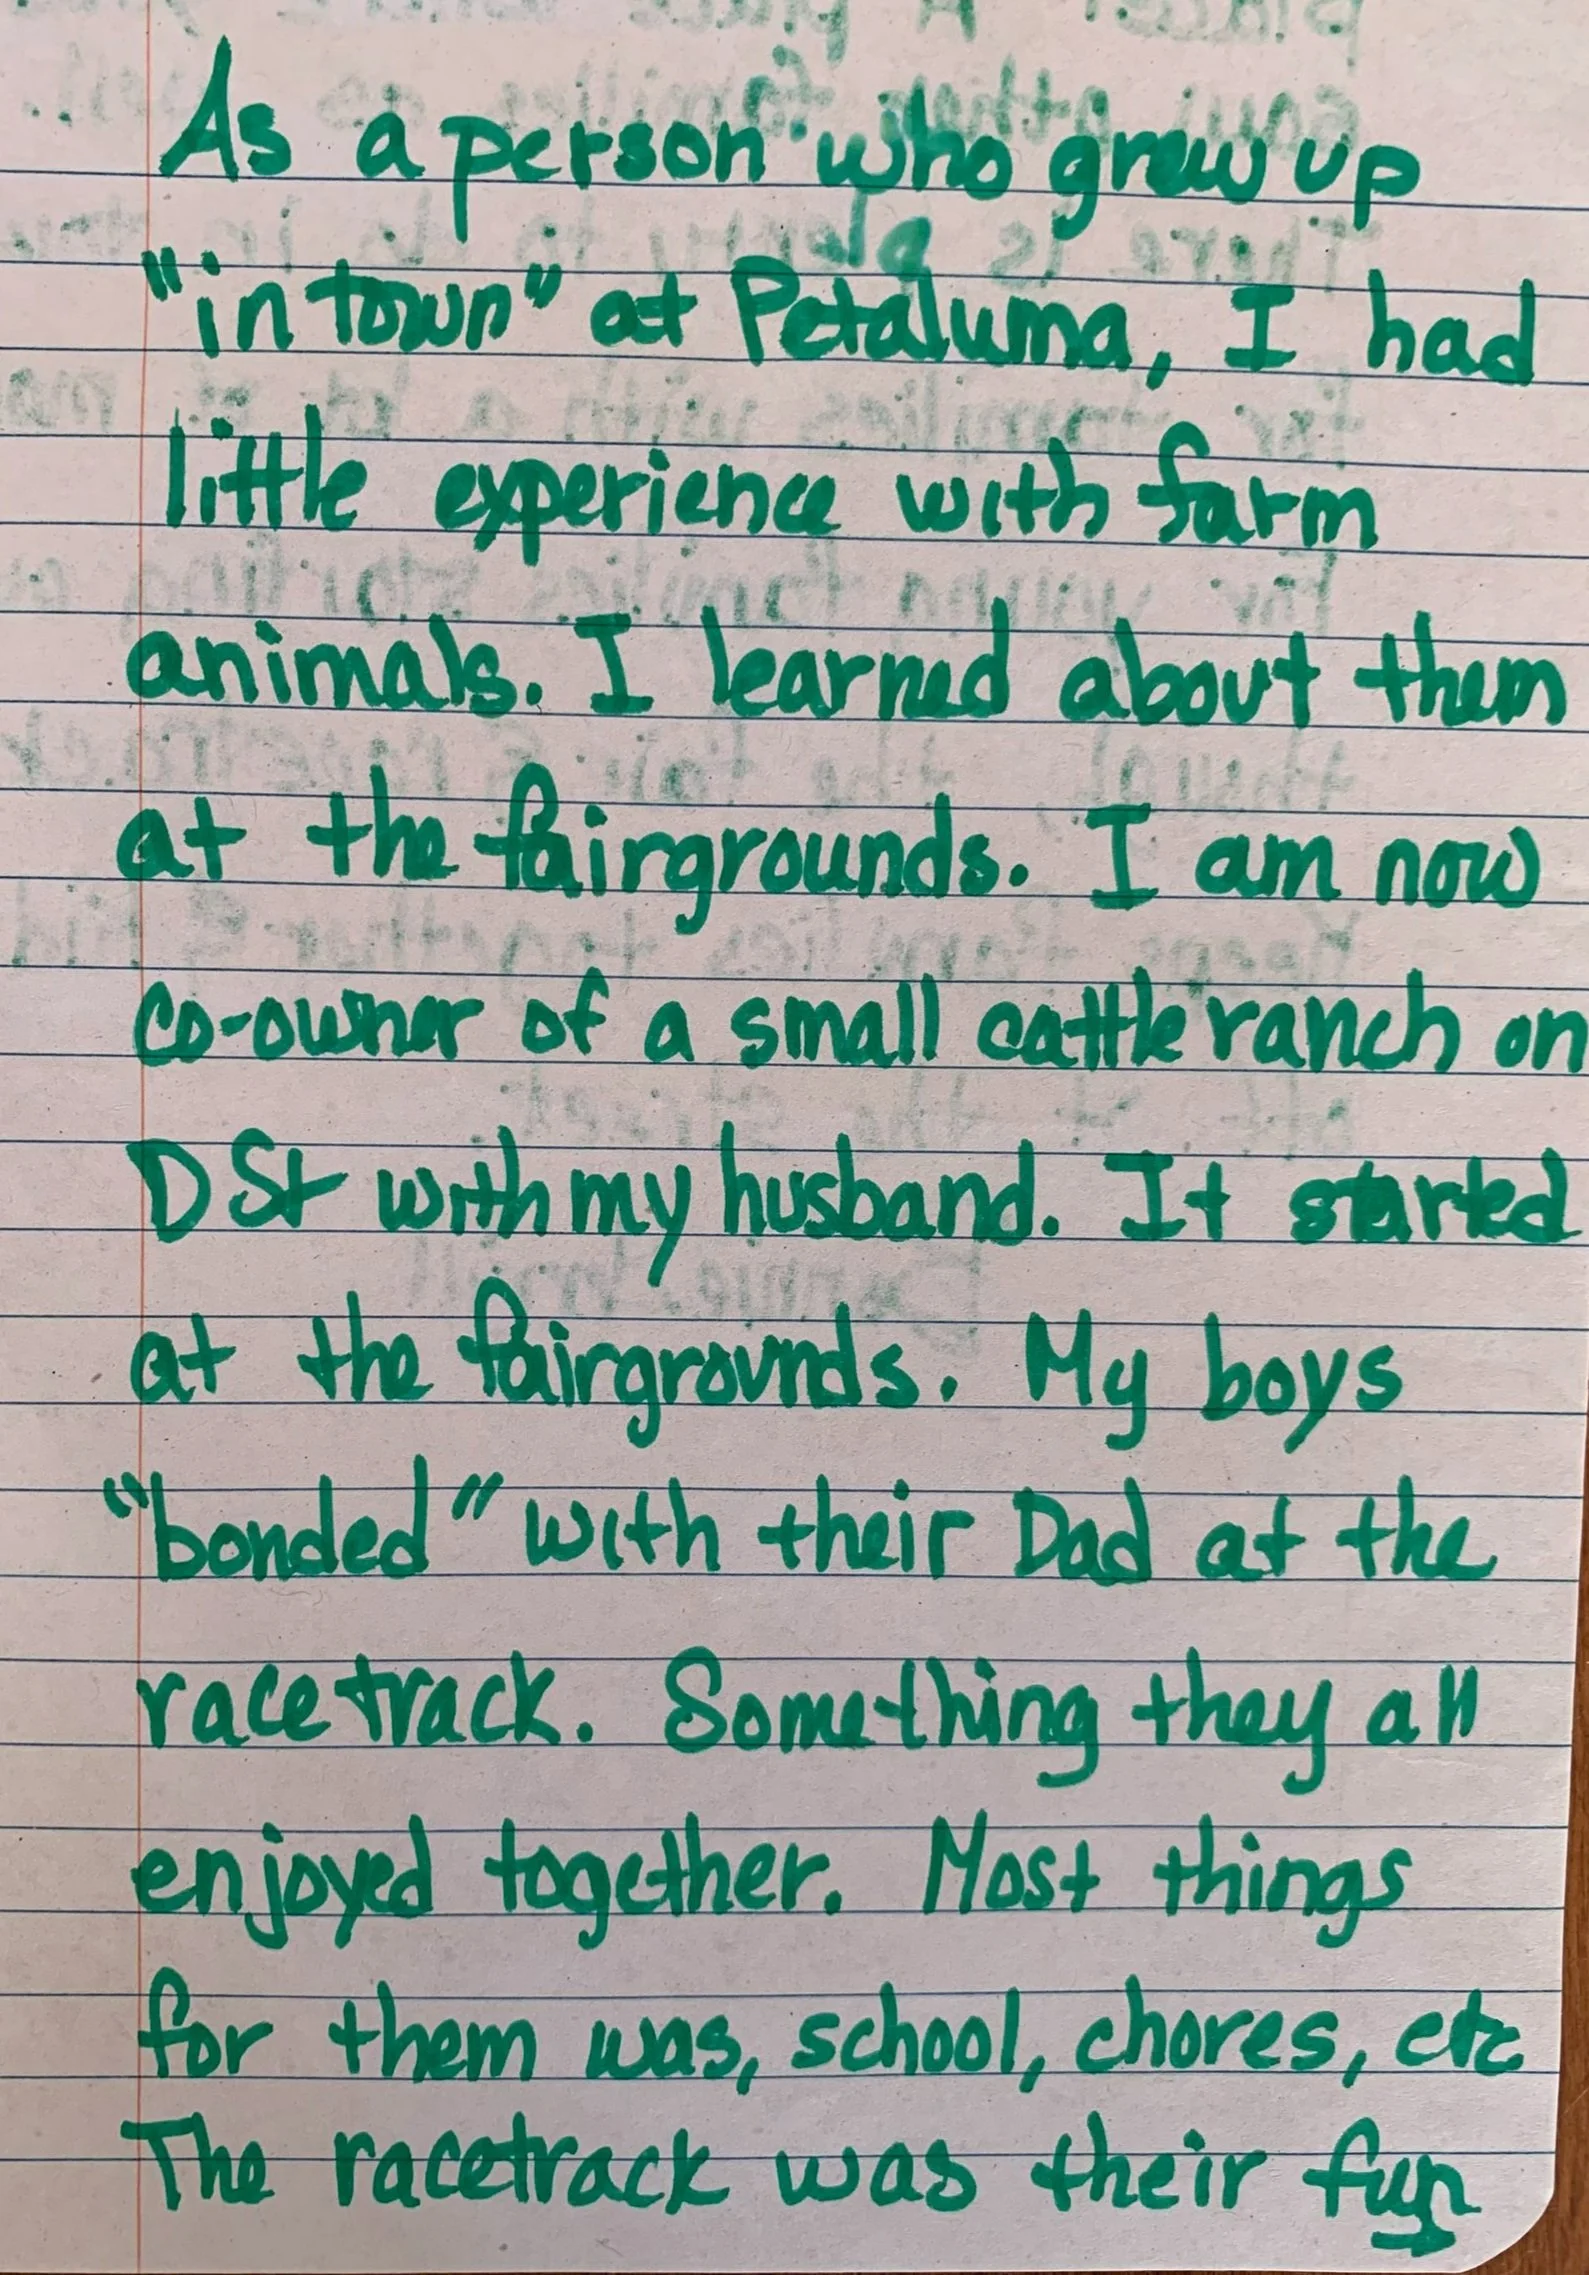 As a person who grew up
"in town" at Petaluma, I had
little experience with farm
animals. I learned about them
at the fairgrounds. I am now
co-owner of a small cattle ranch on
D St with my husband. It started
at the fairgrounds. My boys
"bonded" with their Dad at the
racetrack. Something they all
enjoyed together. Most things
for them was, school, chores, etc
The racetrack was their fun